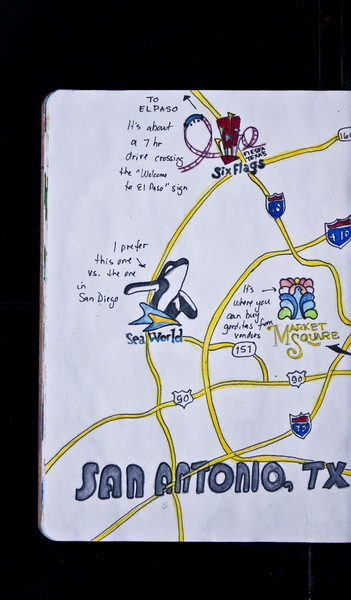 TO
ELPASO
It's about
a 7 hr
drive crossing
the "Welcome
to El Paso" sign
FIESTA
TEXAS
Six Flags
10
410
I prefer
this one
vs. the one
in
San Diego
SeaWorld
It's
where you
can buy
gorditas from
vendors
MARKET
SQUARE
151
90
90
35
SAN ANTONIO, TX